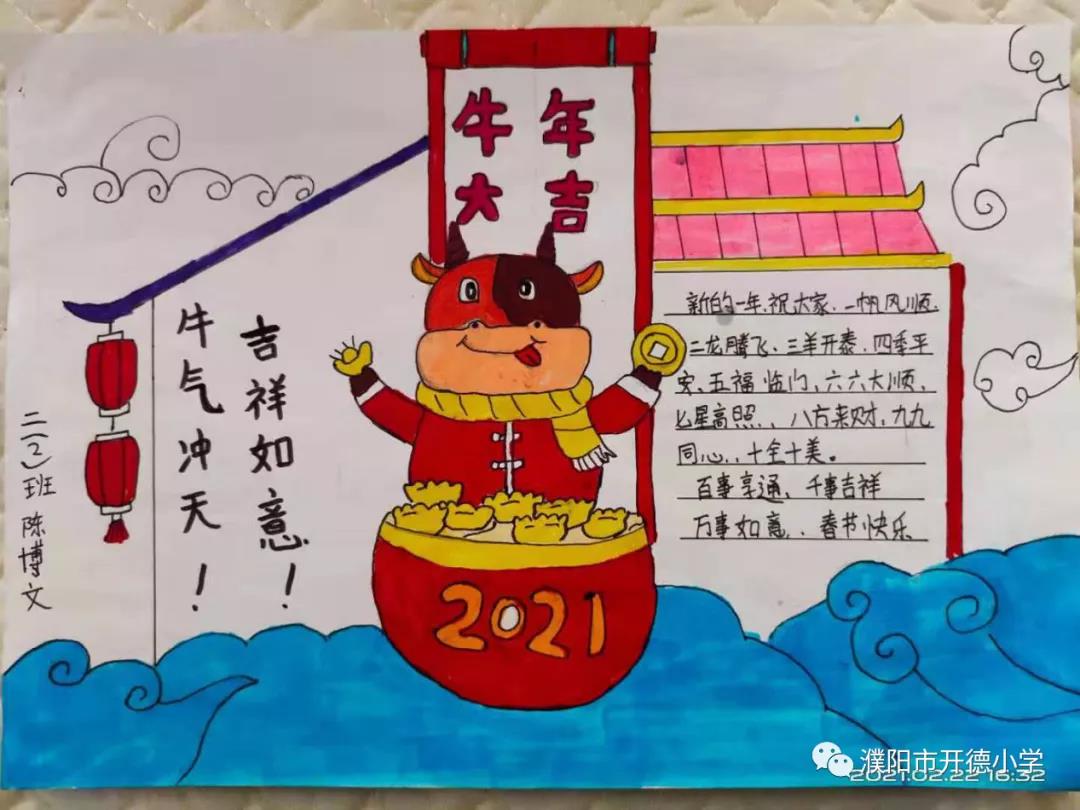 牛年
大吉
吉祥如意！
牛气冲天！
二(2)班 陈博文
新的一年,祝大家、一帆风顺、
二龙腾飞、三羊开泰、四季平
安、五福临门、六六大顺、
七星高照、八方来财,九九
同心、十全十美。
百事享通、千事吉祥
万事如意、春节快乐
2021
濮阳市开德小学
2021.02.22 16:32